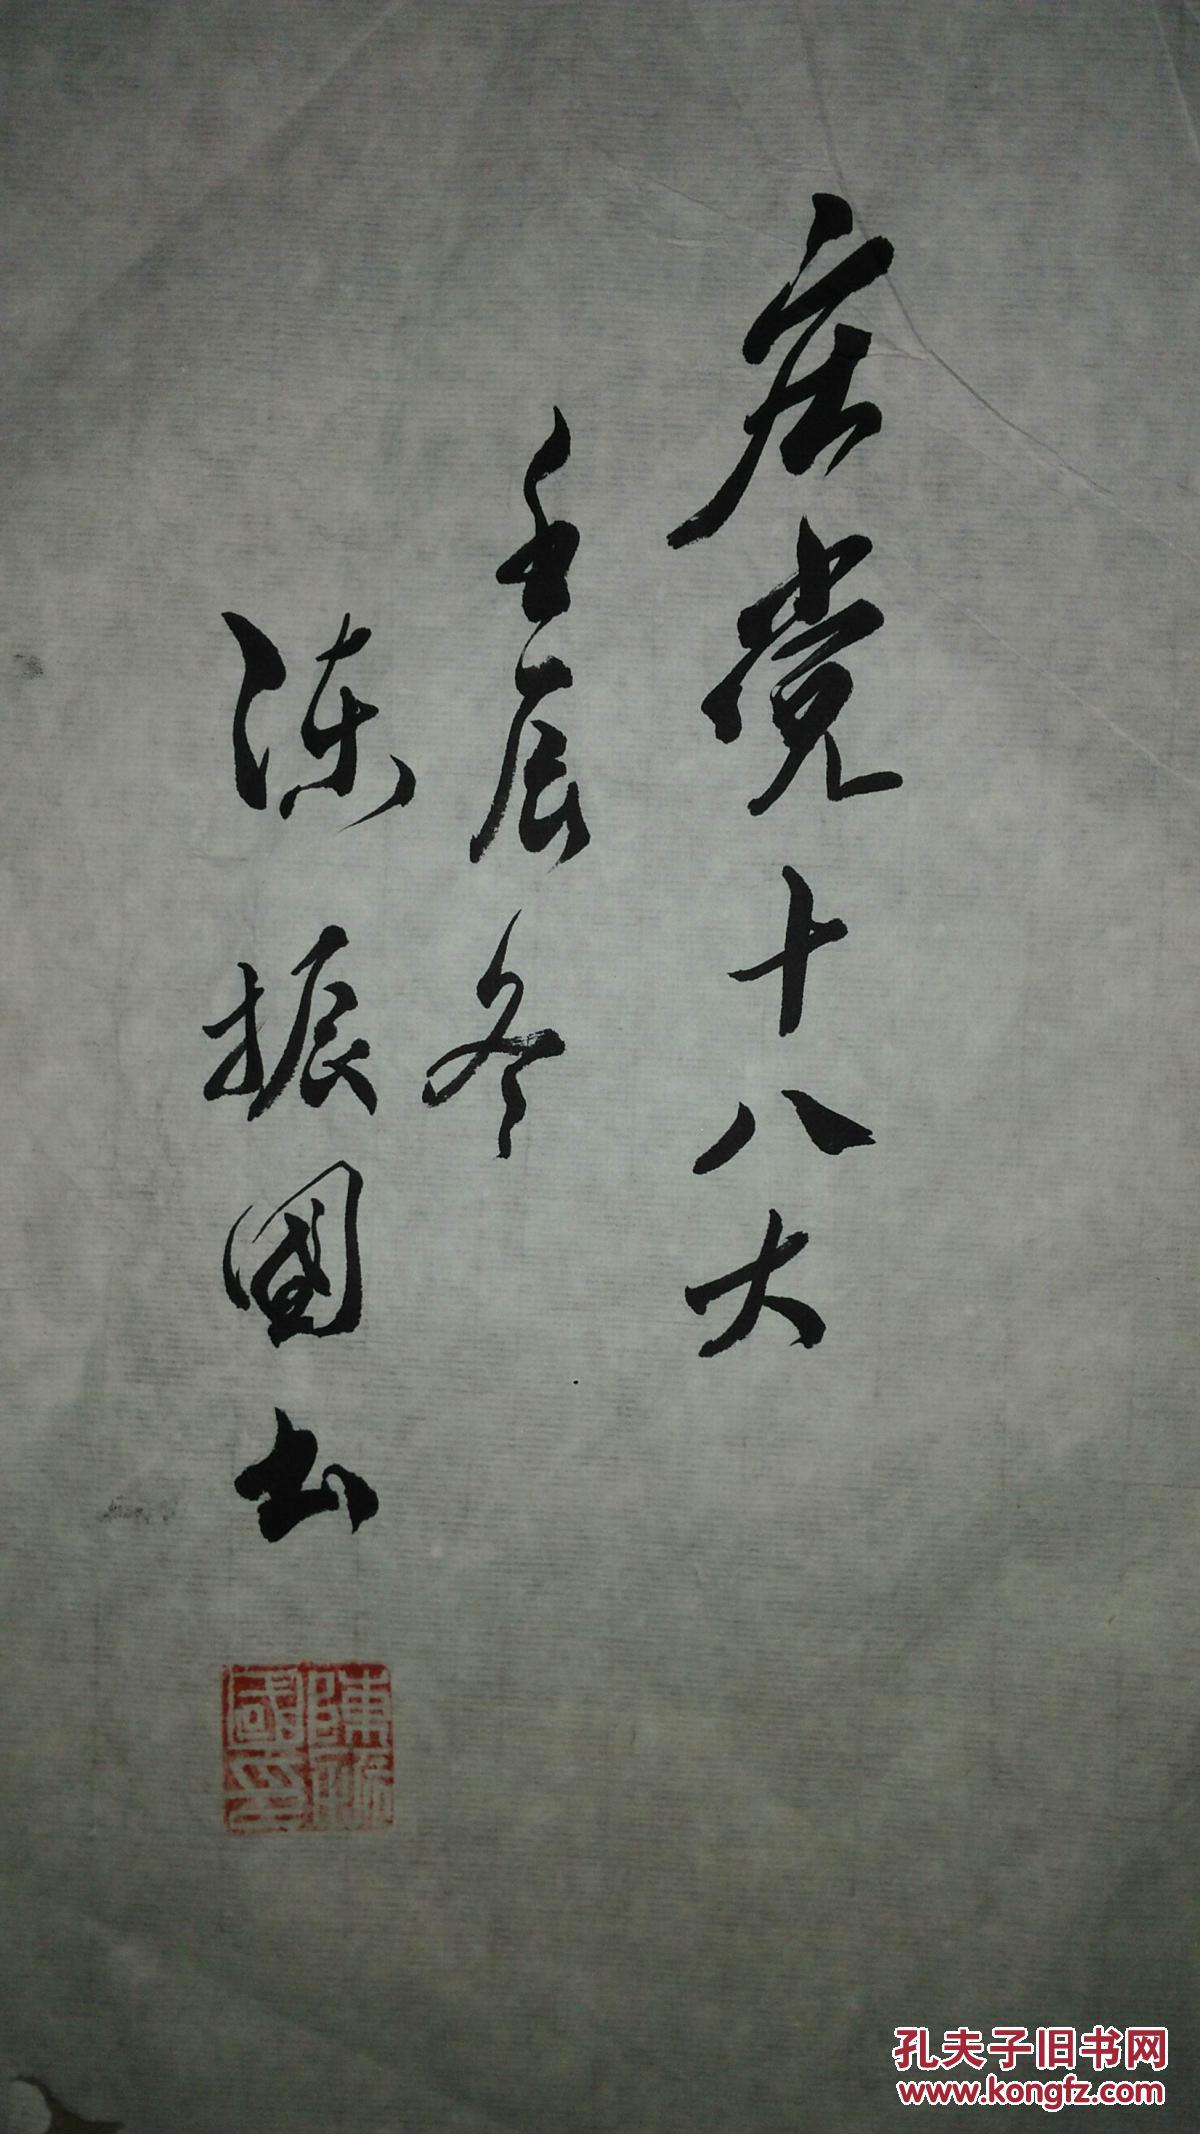 庆党十八大
壬辰冬
陈振国书
陳振國印
孔夫子旧书网
www.kongfz.com